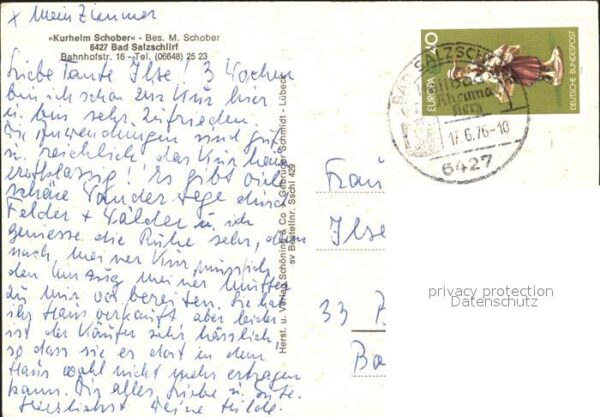 x Mein Zimmer
»Kurheim Schober« - Bes. M. Schober
6427 Bad Salzschlirf
Bahnhofstr. 16 - Tel. (06648) 25 23
Liebe Tante Ilse! 3 Wochen
bin ich schon zur Kur hier
u. bin sehr zufrieden.
Die Anwendungen sind gut
u. reichlich, das Kurhaus
erstklassig! Es gibt viele
schöne Wanderwege durch
Felder + Wälder u. ich
genieße die Ruhe sehr, denn
nach meiner Kur muss ich
den Umzug meiner Mutter
zu mir vorbereiten. Sie hat
ihr Haus verkauft aber leider
ist der Käufer sehr hässlich,
so dass sie es dort in dem
Haus wohl nicht mehr ertragen
kann. Dir alles Liebe u. Gute.
Herzlichst Deine Hilde.
Herst. u. Verlag Schöning & Co + Gebrüder Schmidt - Lübeck
sv Bestellnr. Sschl 429
EUROPA 40
DEUTSCHE BUNDESPOST
BAD SALZSCH
Rheuma
17.6.76-18
6427
Frau
Ilse
33
Ba
privacy protection
Datenschutz